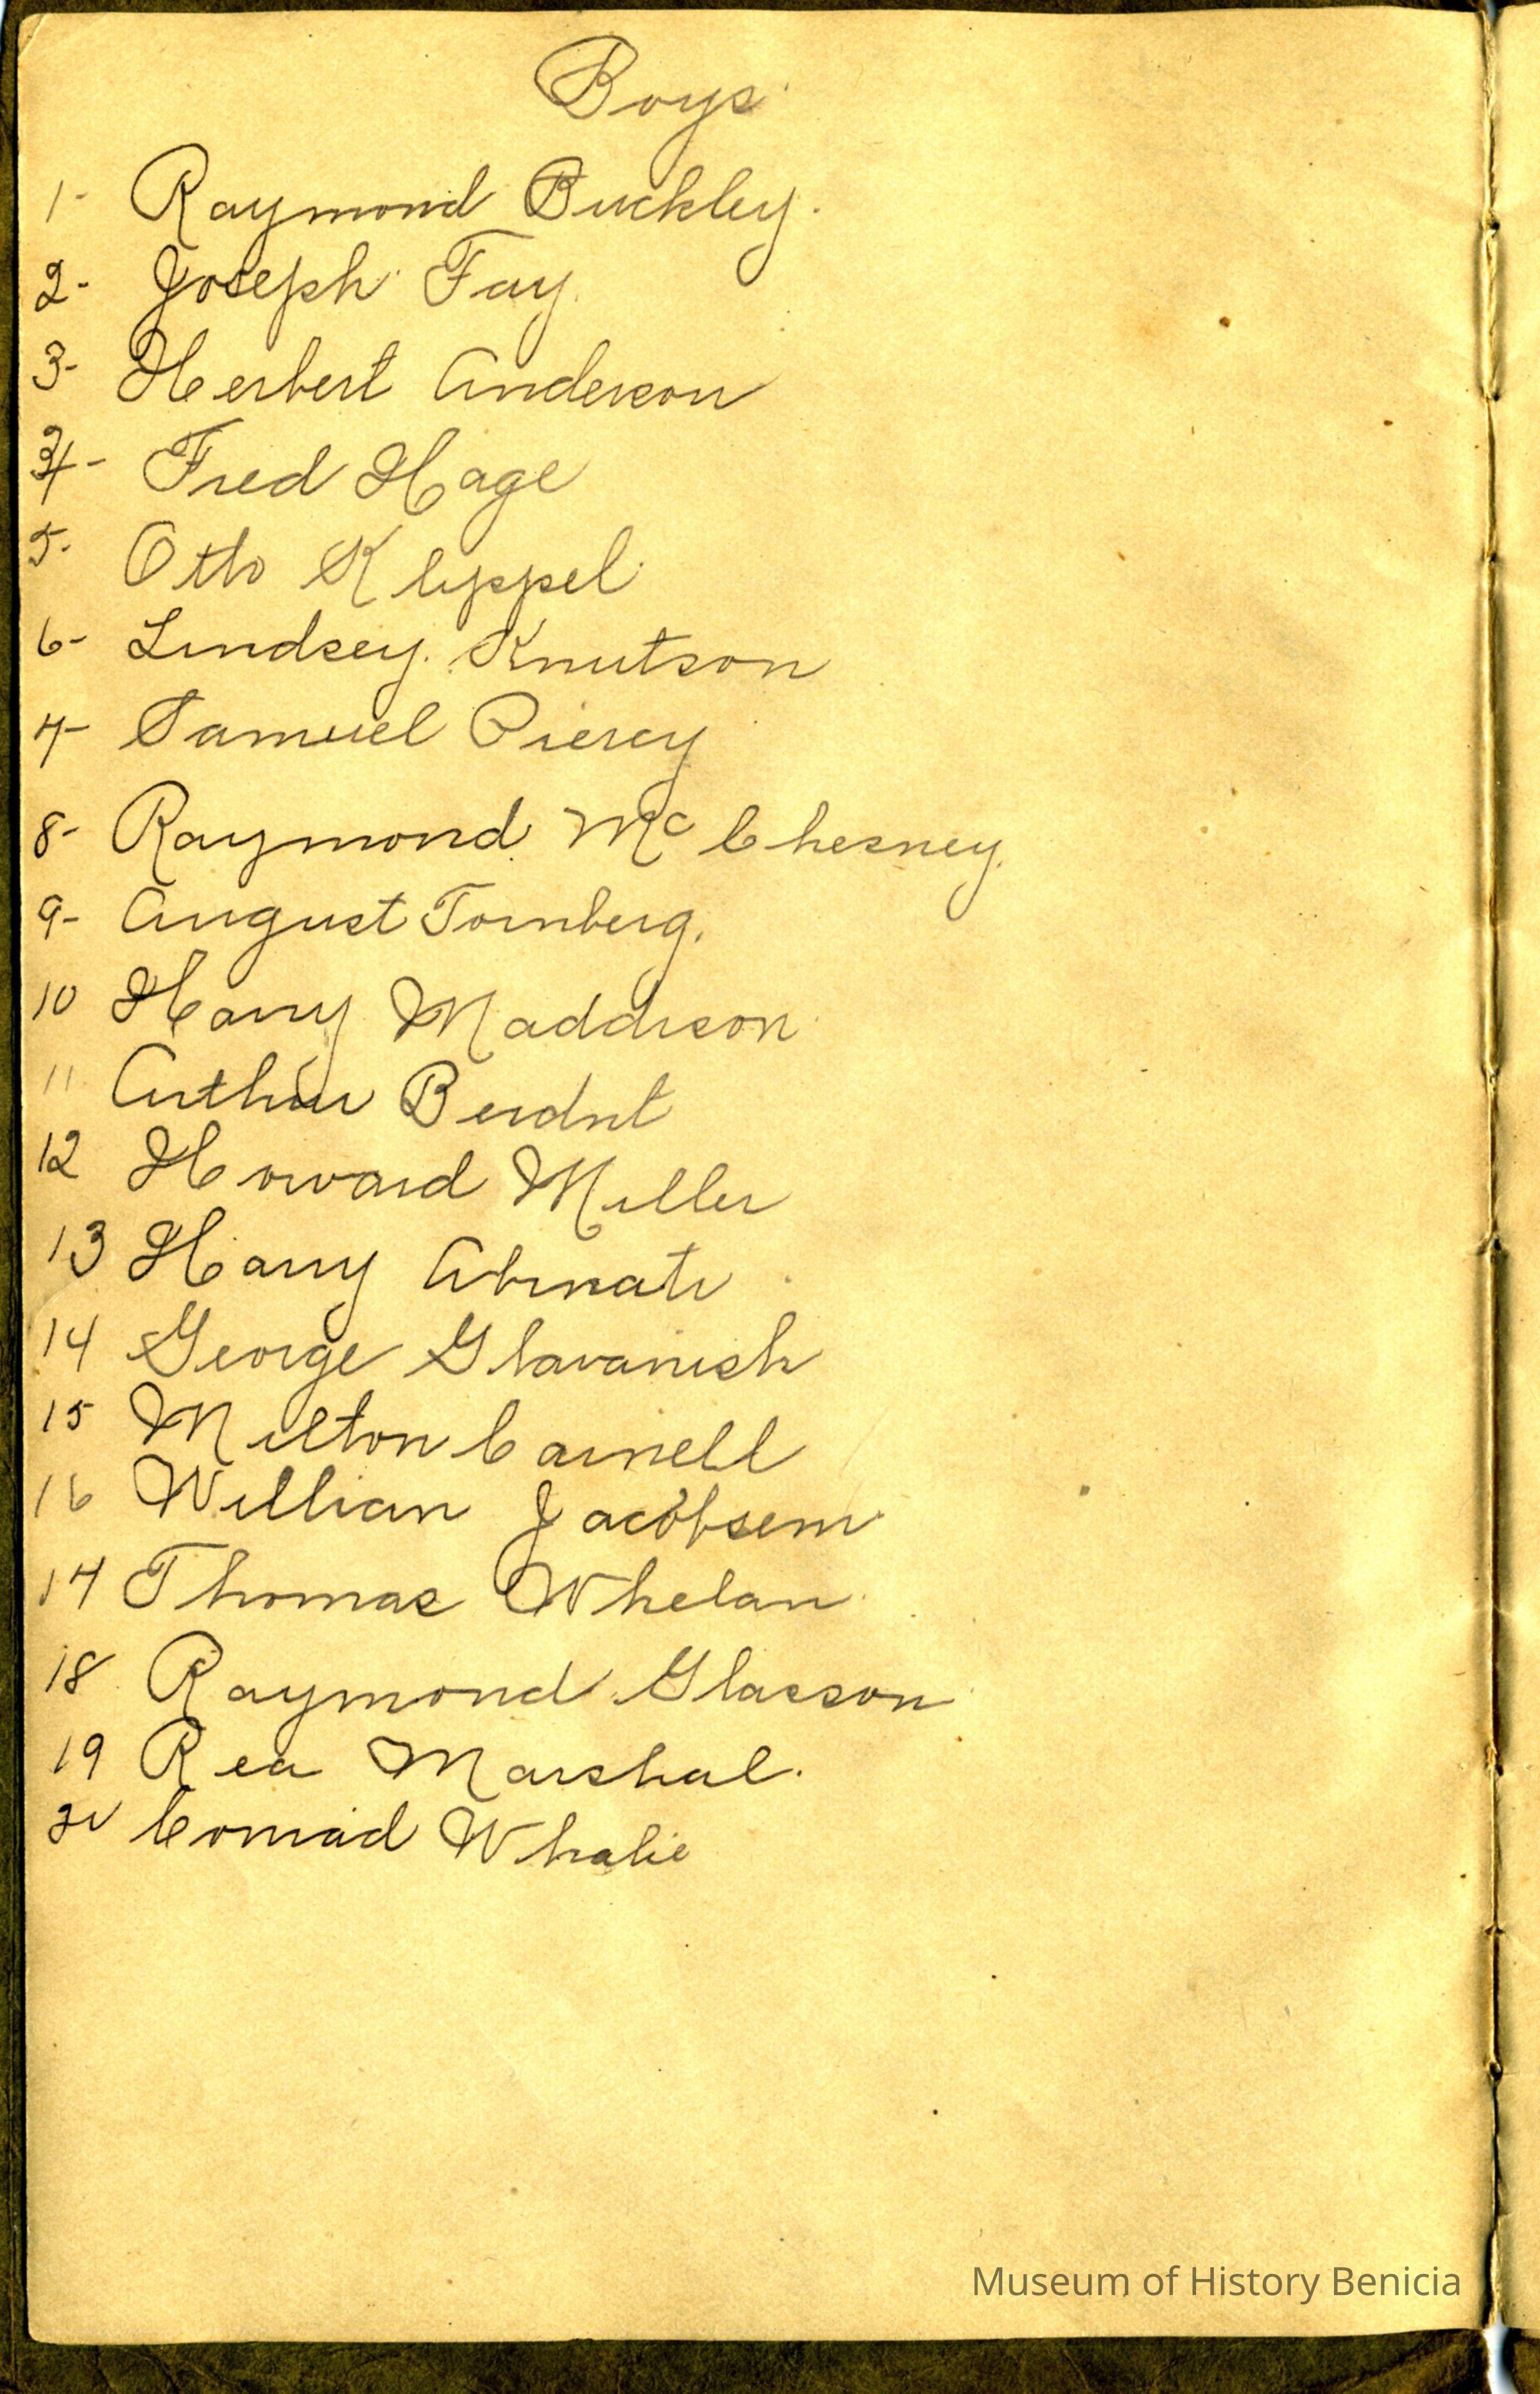 Boys
1- Raymond Buckley.
2- Joseph Fay.
3- Herbert Anderson
4- Fred Hage
5- Otto Klippel
6- Lindsey Knutson
7- Samuel Piercy
8- Raymond Mc Chesney.
9- August Tornberg.
10 Harry Maddison
11 Arthur Berdnt
12 Howard Miller
13 Harry
14 George Glavanish
15 Milton Carnell
16 Willian Jacobsem
17 Thomas Whelan
18 Raymond Glasson
19 Rea Marshal.
20 Conrad Whalie
Museum of History Benicia